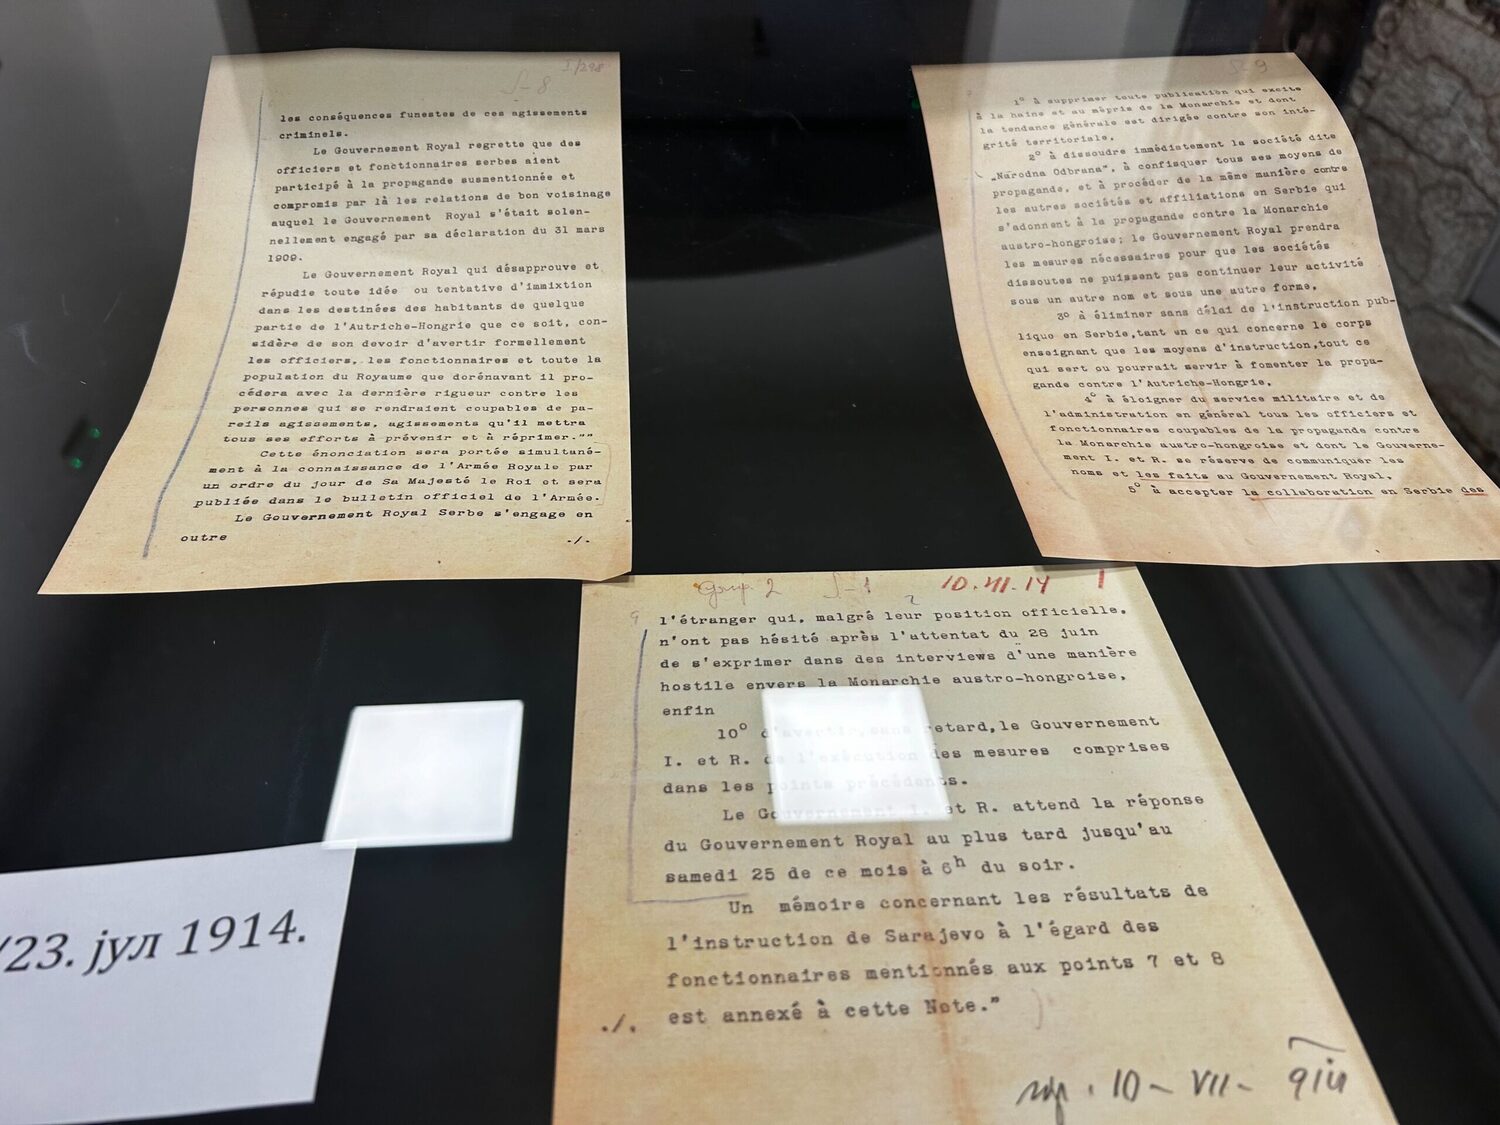 I/298
S-8
les conséquences funestes de ces agissements
criminels.
Le Gouvernement Royal regrette que des
officiers et fonctionnaires serbes aient
participé à la propagande susmentionnée et
compromis par là les relations de bon voisinage
auquel le Gouvernement Royal s'était solen-
nellement engagé par sa déclaration du 31 mars
1909.
Le Gouvernement Royal qui désapprouve et
répudie toute idée ou tentative d'immixtion
dans les destinées des habitants de quelque
partie de l'Autriche-Hongrie que ce soit, con-
sidère de son devoir d'avertir formellement
les officiers, les fonctionnaires et toute la
population du Royaume que dorénavant il pro-
cédera avec la dernière rigueur contre les
personnes qui se rendraient coupables de pa-
reils agissements, agissements qu'il mettra
tous ses efforts à prévenir et à réprimer.""
Cette énonciation sera portée simultané-
ment à la connaissance de l'Armée Royale par
un ordre du jour de Sa Majesté le Roi et sera
publiée dans le bulletin officiel de l'Armée.
Le Gouvernement Royal Serbe s'engage en
outre ./.
9
1° à supprimer toute publication qui excite
à la haine et au mépris de la Monarchie et dont
la tendance générale est dirigée contre son inté-
grité territoriale,
2° à dissoudre immédiatement la société dite
„Narodna Odbrana", à confisquer tous ses moyens de
propagande, et à procéder de la même manière contre
les autres sociétés et affiliations en Serbie qui
s'adonnent à la propagande contre la Monarchie
austro-hongroise; le Gouvernement Royal prendra
les mesures nécessaires pour que les sociétés
dissoutes ne puissent pas continuer leur activité
sous un autre nom et sous une autre forme,
3° à éliminer sans délai de l'instruction pub-
lique en Serbie,tant en ce qui concerne le corps
enseignant que les moyens d'instruction,tout ce
qui sert ou pourrait servir à fomenter la propa-
gande contre l'Autriche-Hongrie,
4° à éloigner du service militaire et de
l'administration en général tous les officiers et
fonctionnaires coupables de la propagande contre
la Monarchie austro-hongroise et dont le Gouverne-
ment I. et R. se réserve de communiquer les
noms et les faits au Gouvernement Royal,
5° à accepter la collaboration en Serbie des
2 S-1 10.VII.14 1
l'étranger qui, malgré leur position officielle,
n'ont pas hésité après l'attentat du 28 juin
de s'exprimer dans des interviews d'une manière
hostile envers la Monarchie austro-hongroise,
enfin
10° d'avertir,sans retard,le Gouvernement
I. et R. de l'exécution des mesures comprises
dans les points précédents.
Le Gouvernement I. et R. attend la réponse
du Gouvernement Royal au plus tard jusqu'au
samedi 25 de ce mois à 6h du soir.
Un mémoire concernant les résultats de
l'instruction de Sarajevo à l'égard des
fonctionnaires mentionnés aux points 7 et 8
./. est annexé à cette Note."
10 - VII - 914
/23. јул 1914.